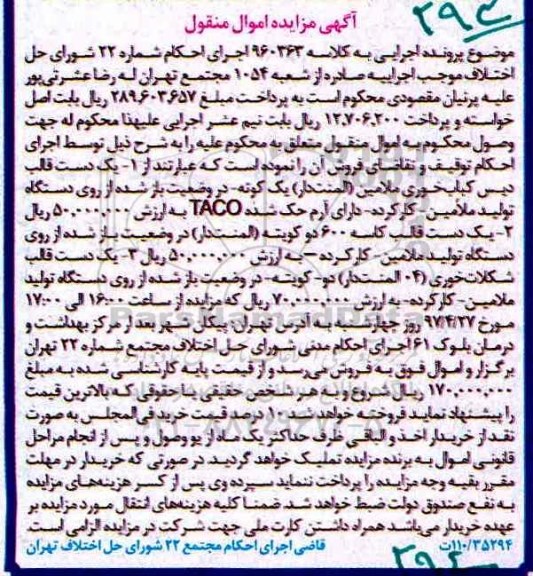 ۲۹۴
آگهی مزایده اموال منقول
موضوع پرونده اجرایی به کلاسه ۹۶۰۳۶۳ اجرای احکام شماره ۲۲ شورای حل
اختلاف موجب اجراییه صادره از شعبه ۱۰۵۴ مجتمع تهران له رضا عشرتی‌پور
علیه پرنیان مقصودی محکوم است به پرداخت مبلغ ۲۸۹,۶۰۳,۶۵۷ ریال بابت اصل
خواسته و پرداخت ۱۲,۷۰۶,۲۰۰ ریال بابت نیم عشر اجرایی علیهذا محکوم له جهت
وصول محکوم به اموال منقول متعلق به محکوم علیه را به شرح ذیل توسط اجرای
احکام توقیف و تقاضای فروش آن را نموده است که عبارتند از ۱- یک دست قالب
دیس کباب‌خوری ملامین (المنت‌دار) یک کوته- در وضعیت باز شده از روی دستگاه
تولید ملامین- کارکرده- دارای آرم حک شده TACO به ارزش ۵۰,۰۰۰,۰۰۰ ریال
۲- یک دست قالب کاسه ۶۰۰ دو کویته (المنت‌دار) در وضعیت باز شده از روی
دستگاه تولید ملامین- کارکرده- به ارزش ۵۰,۰۰۰,۰۰۰ ریال ۳- یک دست قالب
شکلات‌خوری (۰۴ المنت‌دار) دو- کویته- در وضعیت باز شده از روی دستگاه تولید
ملامین- کارکرده- به ارزش ۷۰,۰۰۰,۰۰۰ ریال که مزایده از ساعت ۱۶:۰۰ الی ۱۷:۰۰
مورخ ۹۷/۴/۲۷ روز چهارشنبه به آدرس تهران: پیکان شهر بعد از مرکز بهداشت و
درمان بلوک ۶۱ اجرای احکام مدنی شورای حل اختلاف مجتمع شماره ۲۲ تهران
برگزار و اموال فوق به فروش می‌رسد و از قیمت پایه کارشناسی شده به مبلغ
۱۷۰,۰۰۰,۰۰۰ ریال شروع و به هر شخص حقیقی یا حقوقی که بالاترین قیمت
را پیشنهاد نماید فروخته خواهد شد. ۱۰ درصد قیمت خرید فی‌المجلس به صورت
نقد از خریدار اخذ و الباقی ظرف حداکثر یک ماه از یو وصول و پس از انجام مراحل
قانونی اموال به برنده مزایده تملیک خواهد گردید. در صورتی که خریدار در مهلت
مقرر بقیه وجه مزایده را پرداخت ننماید سپرده وی پس از کسر هزینه‌های مزایده
به نفع صندوق دولت ضبط خواهد شد. ضمنا کلیه هزینه‌های انتقال مورد مزایده بر
عهده خریدار می‌باشد همراه داشتن کارت ملی جهت شرکت در مزایده الزامی است.
۱۱۰/۳۵۲۹۴ت قاضی اجرای احکام مجتمع ۲۲ شورای حل اختلاف تهران